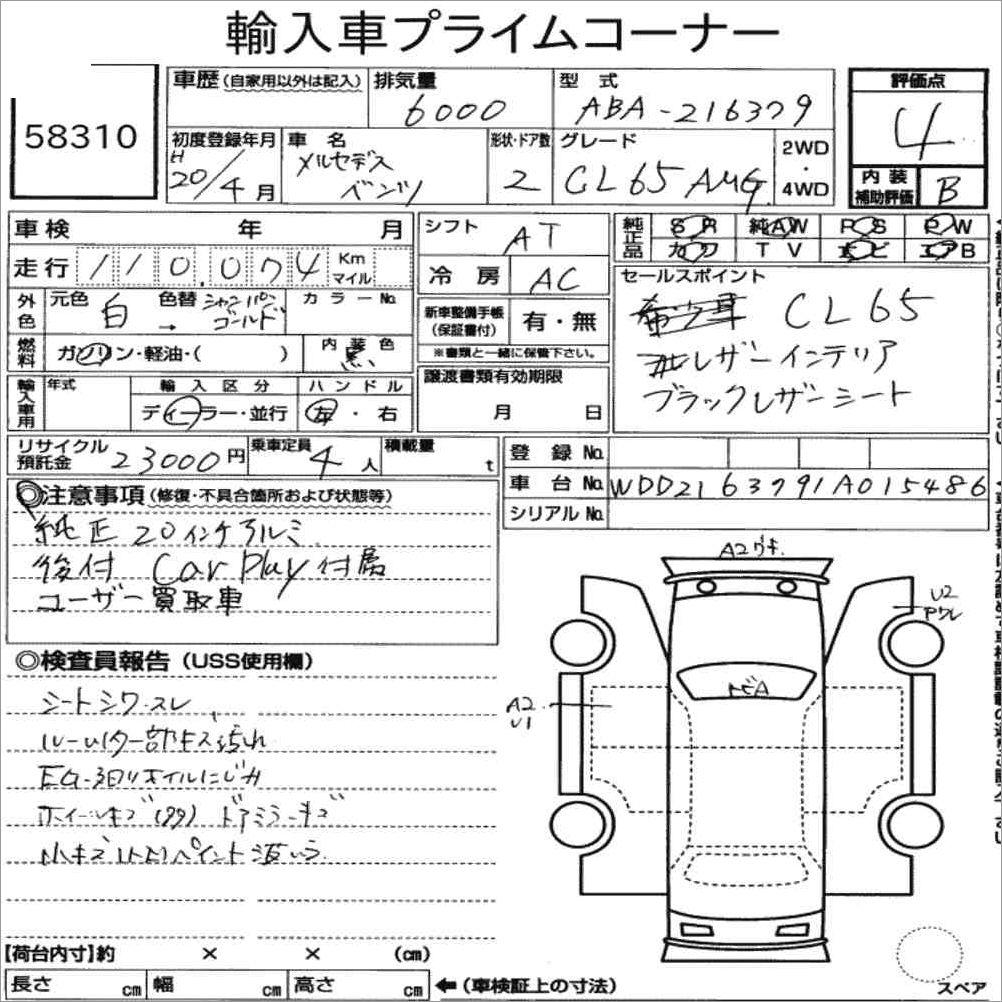 輸入車プライムコーナー
58310
車歴 (自家用以外は記入)
排気量 6000
型式 ABA-216379
評価点 4
初度登録年月 H 20/4月
車名 メルセデス ベンツ
形状・ドア数 2
グレード CL65 AMG
2WD ・ 4WD
内装補助評価 B
車検 年 月
シフト AT
純正品 SR 純AW PS PW
カワ TV ナビ エアB
走行 110,074 Km マイル
冷房 AC
セールスポイント
CL65
レザーインテリア
ブラックレザーシート
外色 元色 白 色替 → シャンパンゴールド カラーNo.
新車整備手帳(保証書付) 有・無
※書類と一緒に保管下さい。
燃料 ガソリン・軽油・( )
内装色 黒い
譲渡書類有効期限 月 日
輸入車用 年式 輸入区分 ディーラー・並行 ハンドル 左・右
リサイクル預託金 23000円
乗車定員 4人
積載量 t
登録No.
車台No. WDD2163791A015486
シリアルNo.
◎注意事項 (修復・不具合箇所および状態等)
純正20インチアルミ
後付 Car Play 付属
ユーザー買取車
◎検査員報告 (USS使用欄)
シートシワ・スレ
EG・廻りオイルにじみ
ホイールキズ ドアミラーキズ
A2 ウキ.
U2
トビA
A2
U1
【荷台内寸】約 × × (cm)
長さ cm 幅 cm 高さ cm
←(車検証上の寸法)
スペア